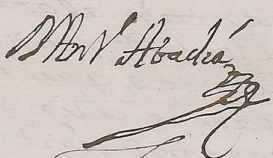 Man.l Abadía